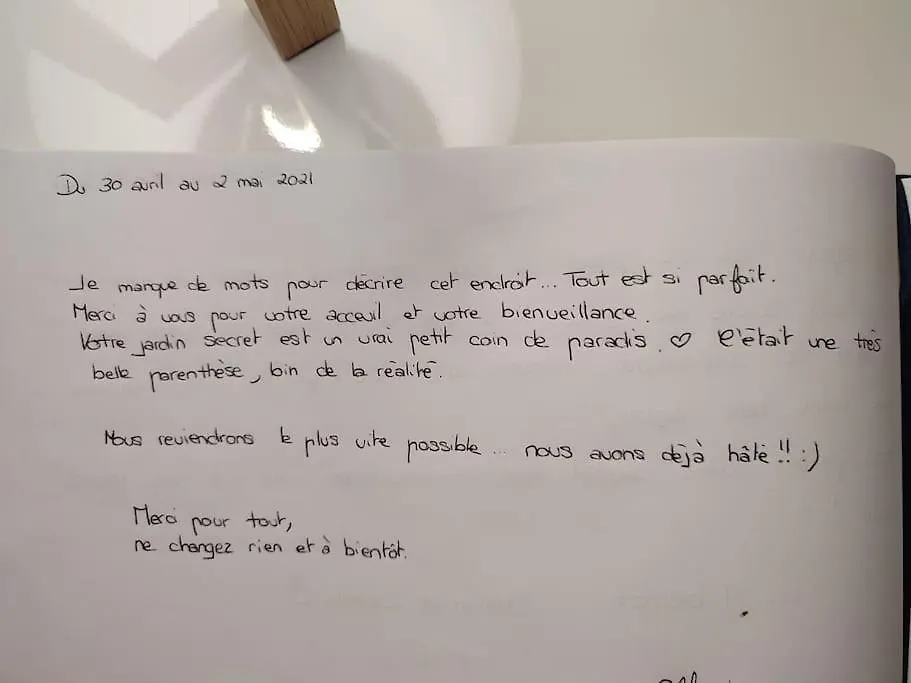 Du 30 avril au 2 mai 2021
Je manque de mots pour décrire cet endroit... Tout est si parfait.
Merci à vous pour votre acceuil et votre bienveillance.
Votre jardin secret est un vrai petit coin de paradis. ♡ C'était une très
belle parenthèse, loin de la réalité.
Nous reviendrons le plus vite possible... nous avons déjà hâte !! :)
Merci pour tout,
ne changez rien et à bientôt.